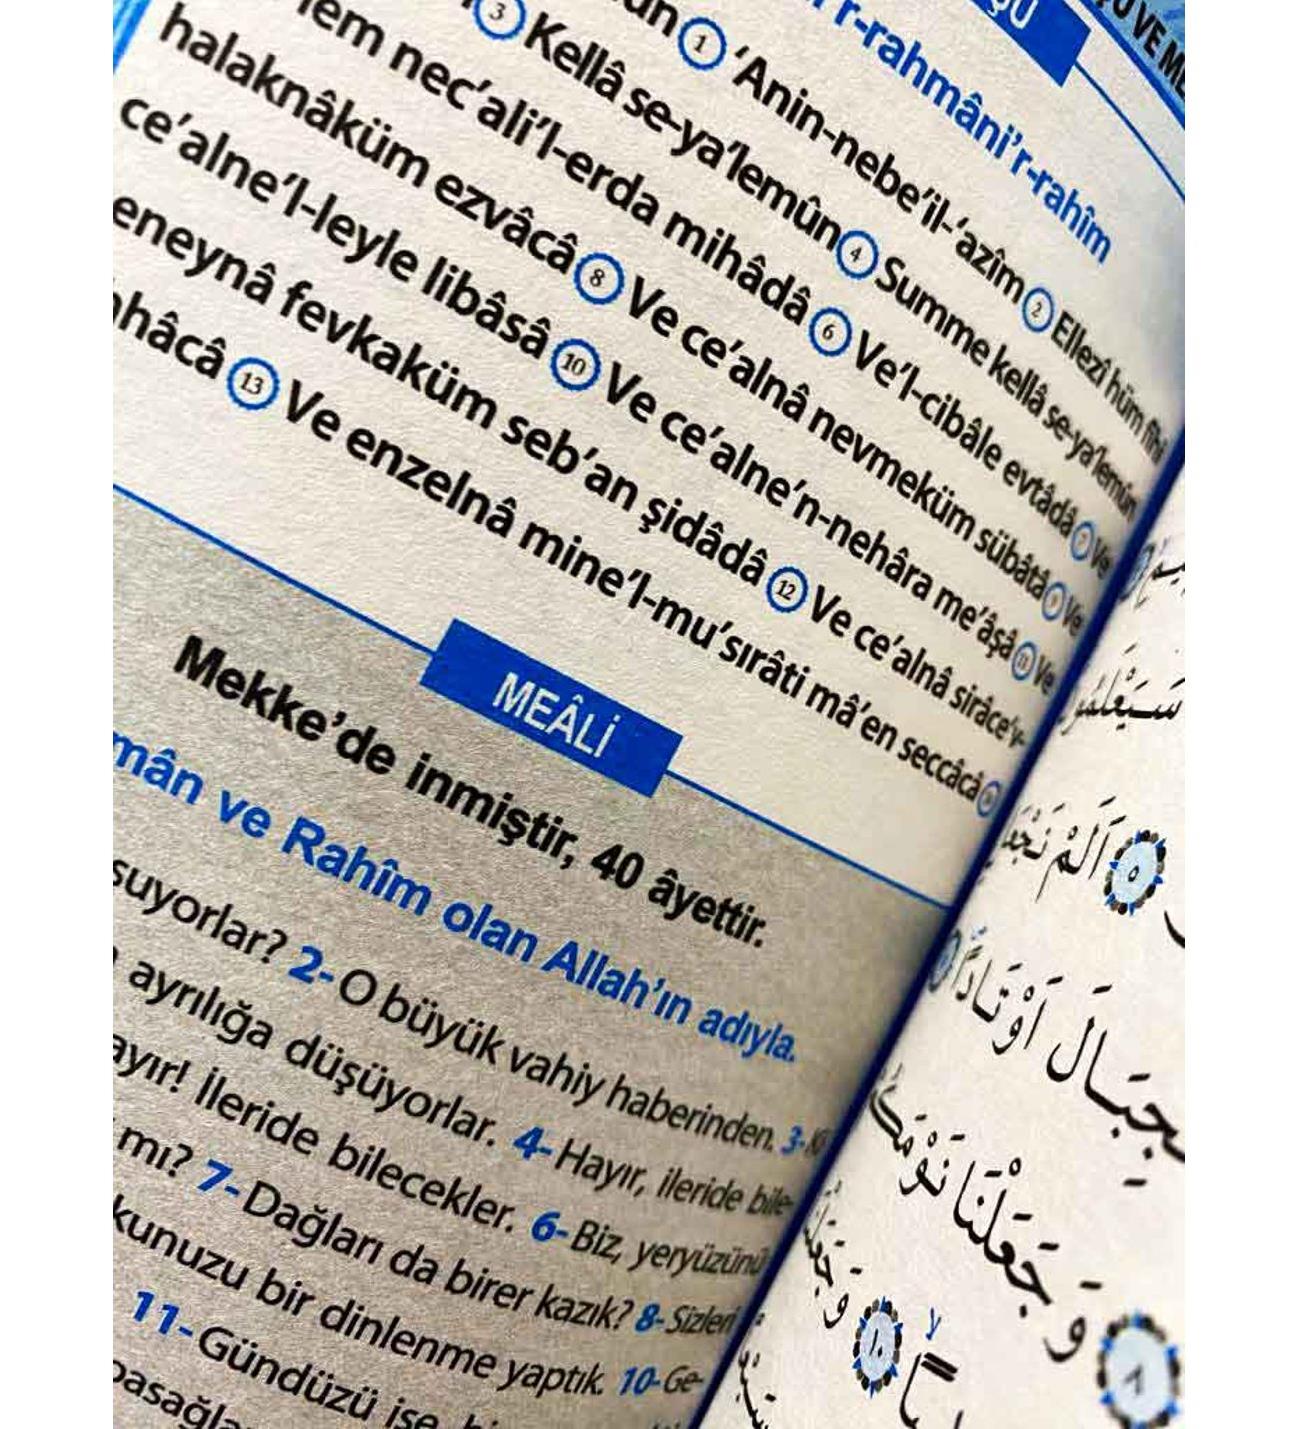 VE
r-rahmâni'r-rahîm
1 'Anin-nebe'il-'azîm 2 Ellezî hüm fîhi
3 Kellâ se-ya'lemûn 4 Summe kellâ se-ya'lemûn
nec'ali'l-erda mihâdâ 6 Ve'l-cibâle evtâdâ 7 Ve
halaknâküm ezvâcâ 8 Ve ce'alnâ nevmeküm sübâtâ 9 Ve
ce'alne'l-leyle libâsâ 10 Ve ce'alne'n-nehâra me'âşâ 11 Ve
eneynâ fevkaküm seb'an şidâdâ 12 Ve ce'alnâ sirâce'v-
hâcâ 13 Ve enzelnâ mine'l-mu'sırâti mâ'en seccâcâ
MEÂLİ
Mekke'de inmiştir, 40 âyettir.
mân ve Rahîm olan Allah'ın adıyla.
suyorlar? 2- O büyük vahiy haberinden. 3-
ayrılığa düşüyorlar. 4- Hayır, ileride bile-
ayır! İleride bilecekler. 6- Biz, yeryüzünü
mı? 7- Dağları da birer kazık? 8- Sizleri
kunuzu bir dinlenme yaptık. 10- Ge-
11- Gündüzü ise
سَيَعْلَمُو
٥ اَلَمْ نَجْعَ
جِبَالَ اَوْتَادًا
٨ وَجَعَلْنَا نَوْمَكُ
١٠ وَجَعَلْ